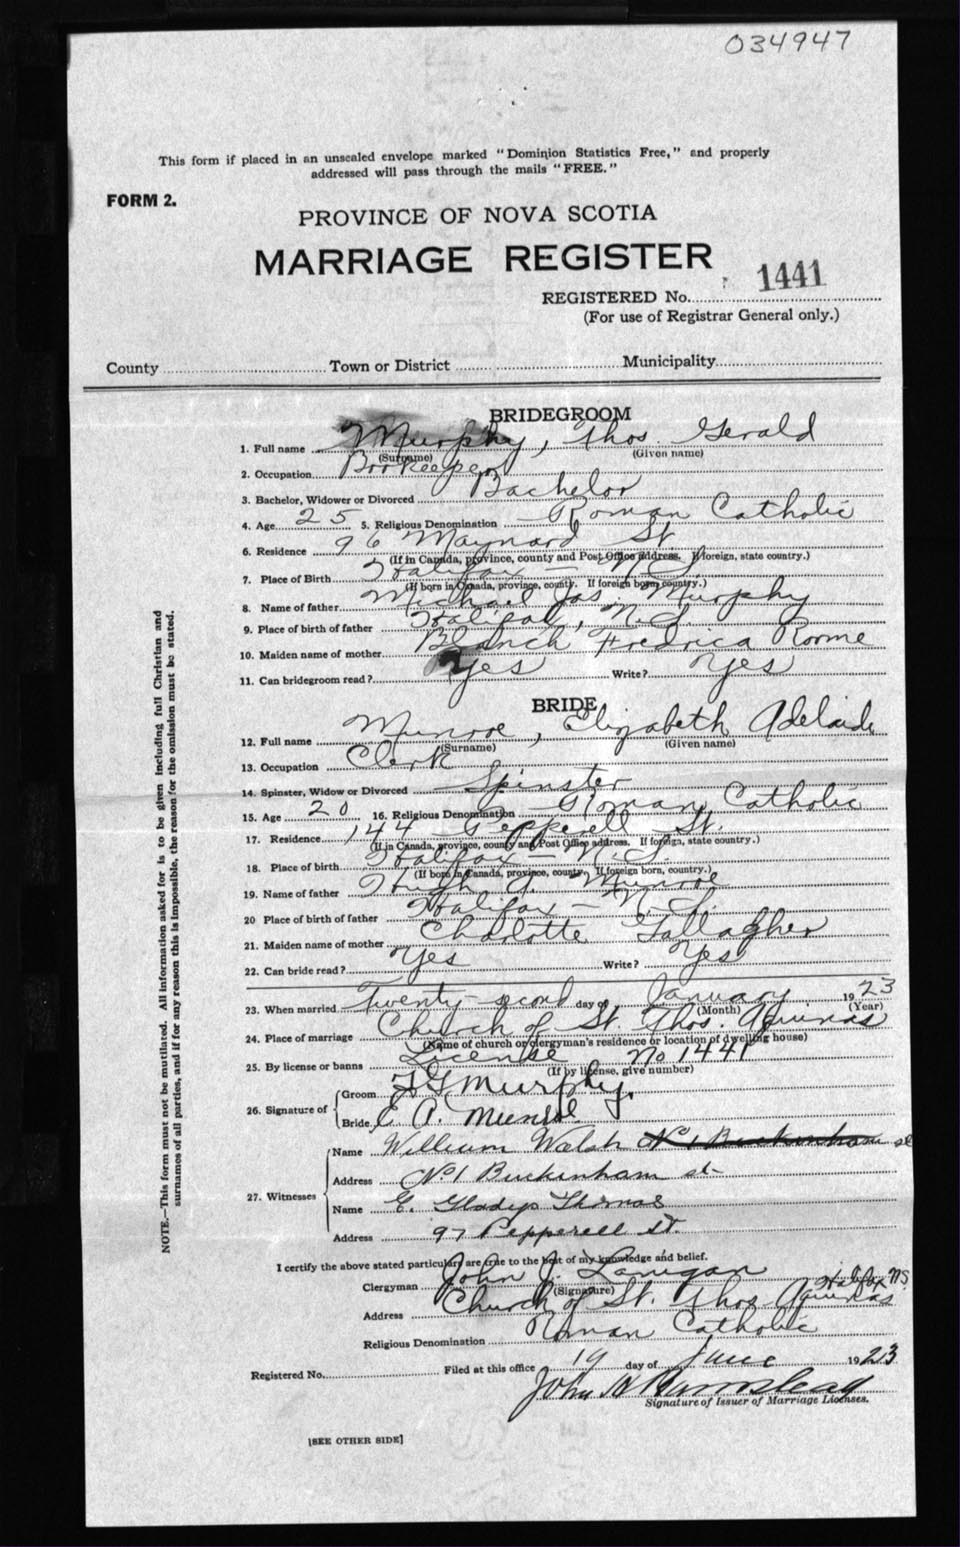 034947
This form if placed in an unsealed envelope marked "Dominion Statistics Free," and properly
addressed will pass through the mails "FREE."
FORM 2.
PROVINCE OF NOVA SCOTIA
MARRIAGE REGISTER
REGISTERED No. 1441
(For use of Registrar General only.)
County Town or District Municipality
BRIDEGROOM
1. Full name Murphy, Thos. Gerald
(Surname) (Given name)
2. Occupation Bookeeper
3. Bachelor, Widower or Divorced Bachelor
4. Age 25 5. Religious Denomination Roman Catholic
6. Residence 96 Maynard St
(If in Canada, province, county and Post Office address. If foreign, state country.)
7. Place of Birth Halifax - N.S.
(If born in Canada, province, county. If foreign born country.)
8. Name of father Michael Jas. Murphy
9. Place of birth of father Halifax, N.S.
10. Maiden name of mother Blanch Fredrica Roome
11. Can bridegroom read? Yes Write? Yes
BRIDE
12. Full name Munroe, Elizabeth Adelaide
(Surname) (Given name)
13. Occupation Clerk
14. Spinster, Widow or Divorced Spinster
15. Age 20 16. Religious Denomination Roman Catholic
17. Residence 144 Pepperell St.
(If in Canada, province, county and Post Office address. If foreign, state country.)
18. Place of birth Halifax - N.S.
(If born in Canada, province, county. If foreign born, country.)
19. Name of father Hugh A. Munroe
20 Place of birth of father Halifax - N.S.
21. Maiden name of mother Charlotte Gallagher
22. Can bride read? Yes Write? Yes
23. When married Twenty-second day of January 1923
(Month) (Year)
24. Place of marriage Church of St. Thos. Aquinas
(Name of church or clergyman's residence or location of dwelling house)
25. By license or banns License No 1441
(If by license, give number)
26. Signature of Groom T G Murphy.
Bride E A. Munroe
27. Witnesses Name William Walsh No 1 Buckinham st
Address No 1 Buckinham st-
Name E. Gladys Thomas
Address 97 Pepperell St.
I certify the above stated particulars are true to the best of my knowledge and belief.
Clergyman John J. Lanigan
(Signature)
Address Church of St. Thos. Aquinas Halifax NS.
Religious Denomination Roman Catholic
Registered No. Filed at this office 19 day of June 1923
John
Signature of Issuer of Marriage Licenses.
[SEE OTHER SIDE]
NOTE.—This form must not be mutilated. All information asked for is to be given including full Christian and
surnames of all parties, and if for any reason this is impossible, the reason for the omission must be stated.